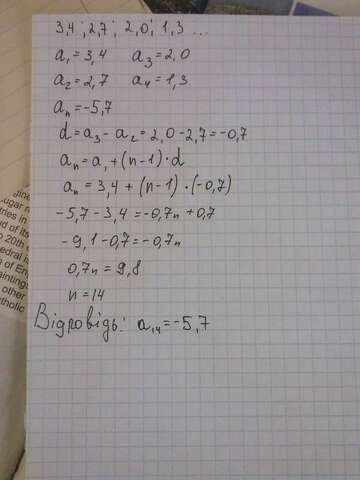 3,4; 2,7; 2,0; 1,3 ...
a₁ = 3,4 a₃ = 2,0
a₂ = 2,7 a₄ = 1,3
aₙ = -5,7
d = a₃ - a₂ = 2,0 - 2,7 = -0,7
aₙ = a₁ + (n-1) · d
aₙ = 3,4 + (n-1) · (-0,7)
-5,7 - 3,4 = -0,7n + 0,7
-9,1 - 0,7 = -0,7n
0,7n = 9,8
n = 14
Відповідь: a₁₄ = -5,7
ugar
ries in
d of its
20th
edral is
of En
aintings
other
atholic